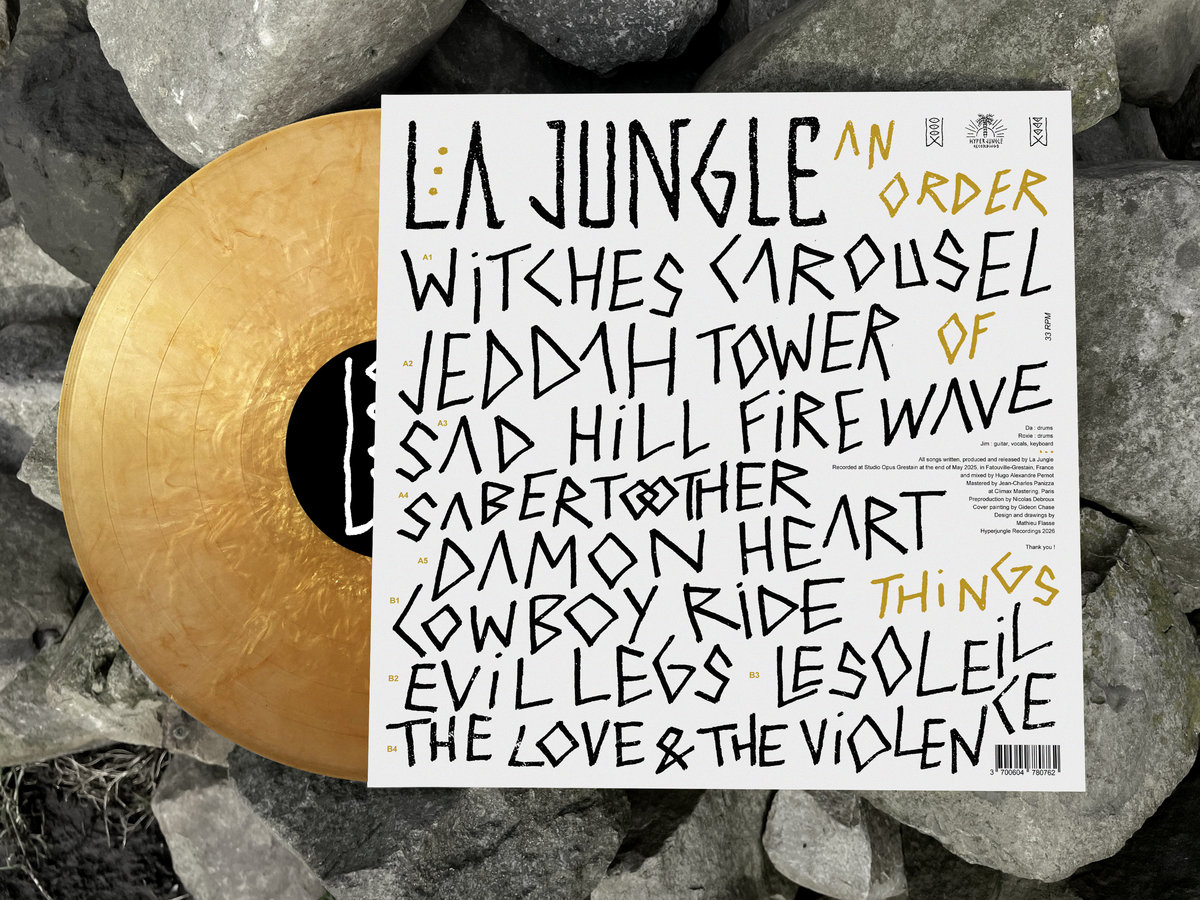 LA JUNGLE AN
HYPER JUNGLE
RECORDINGS
ORDER
A1 WiTCHES CAROUSEL
33 RPM
A2 JEDDAH TOWER OF
A3 SAD HiLL FiRE WAVE
Da : drums
Roxie : drums
Jim : guitar, vocals, keyboard
All songs written, produced and released by La Jungle
Recorded at Studio Opus Grestain at the end of May 2025, in Fatouville-Grestain, France
and mixed by Hugo Alexandre Pernot
Mastered by Jean-Charles Panizza
at Climax Mastering, Paris
Preproduction by Nicolas Debroux
Cover painting by Gideon Chase
Design and drawings by
Mathieu Flasse
Hyperjungle Recordings 2026
Thank you !
A4 SABERTOOTHER
A5 DAMON HEART
B1 COWBOY RiDE THiNGS
B2 EViL LEGS B3 LE SOLEiL
B4 THE LOVE & THE ViOLENCE
3 700604 780762